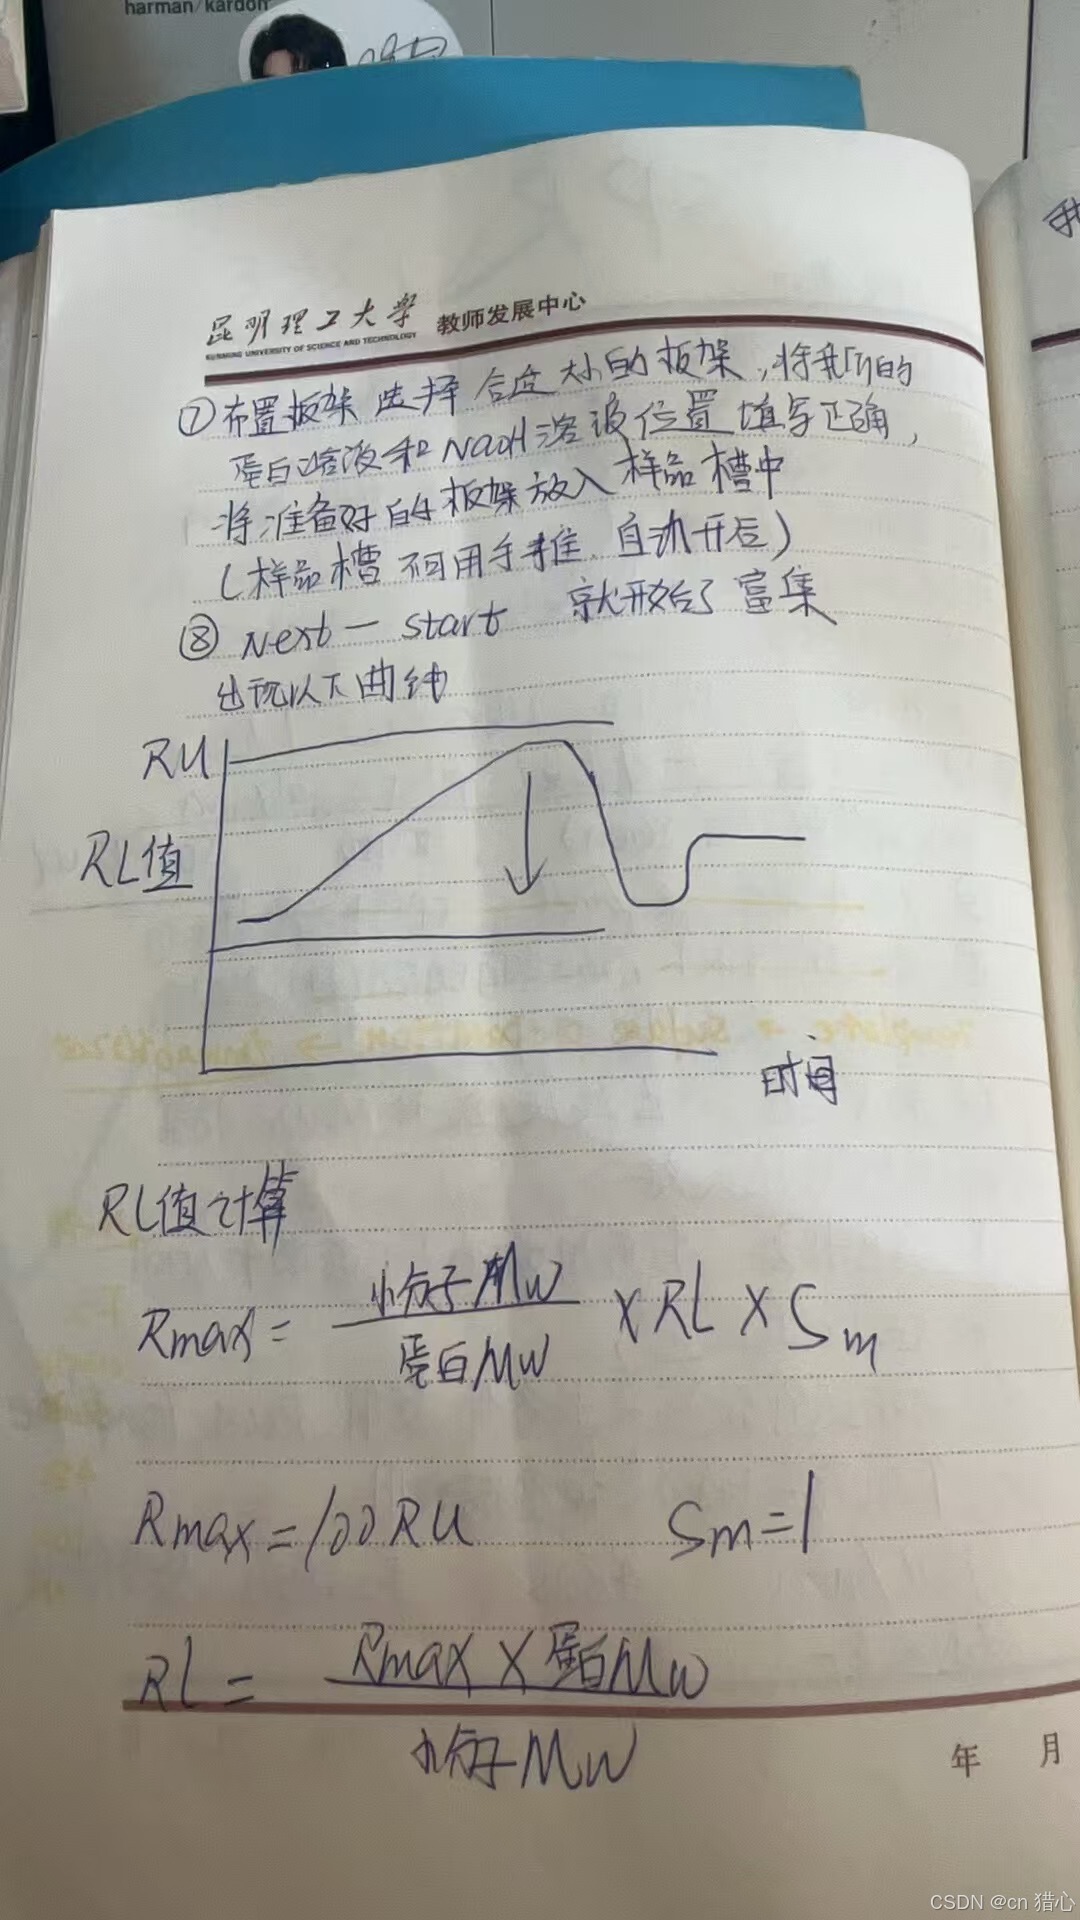 harman/kardon
昆明理工大学 教师发展中心
KUNMING UNIVERSITY OF SCIENCE AND TECHNOLOGY
⑦布置板架 选择 合适大小的板架,将我们的
蛋白溶液和NaOH溶液位置填写正确,
将准备好的板架放入样品槽中
(样品槽不可用手推.自动开启)
⑧ Next — start 就开始了富集
出现以下曲线
RU
RL值
时间
RL值计算
Rmax = 小分子MW / 蛋白MW × RL × Sm
Rmax = 100RU Sm=1
RL = Rmax × 蛋白MW
小分子MW
年 月
CSDN @cn 猎心